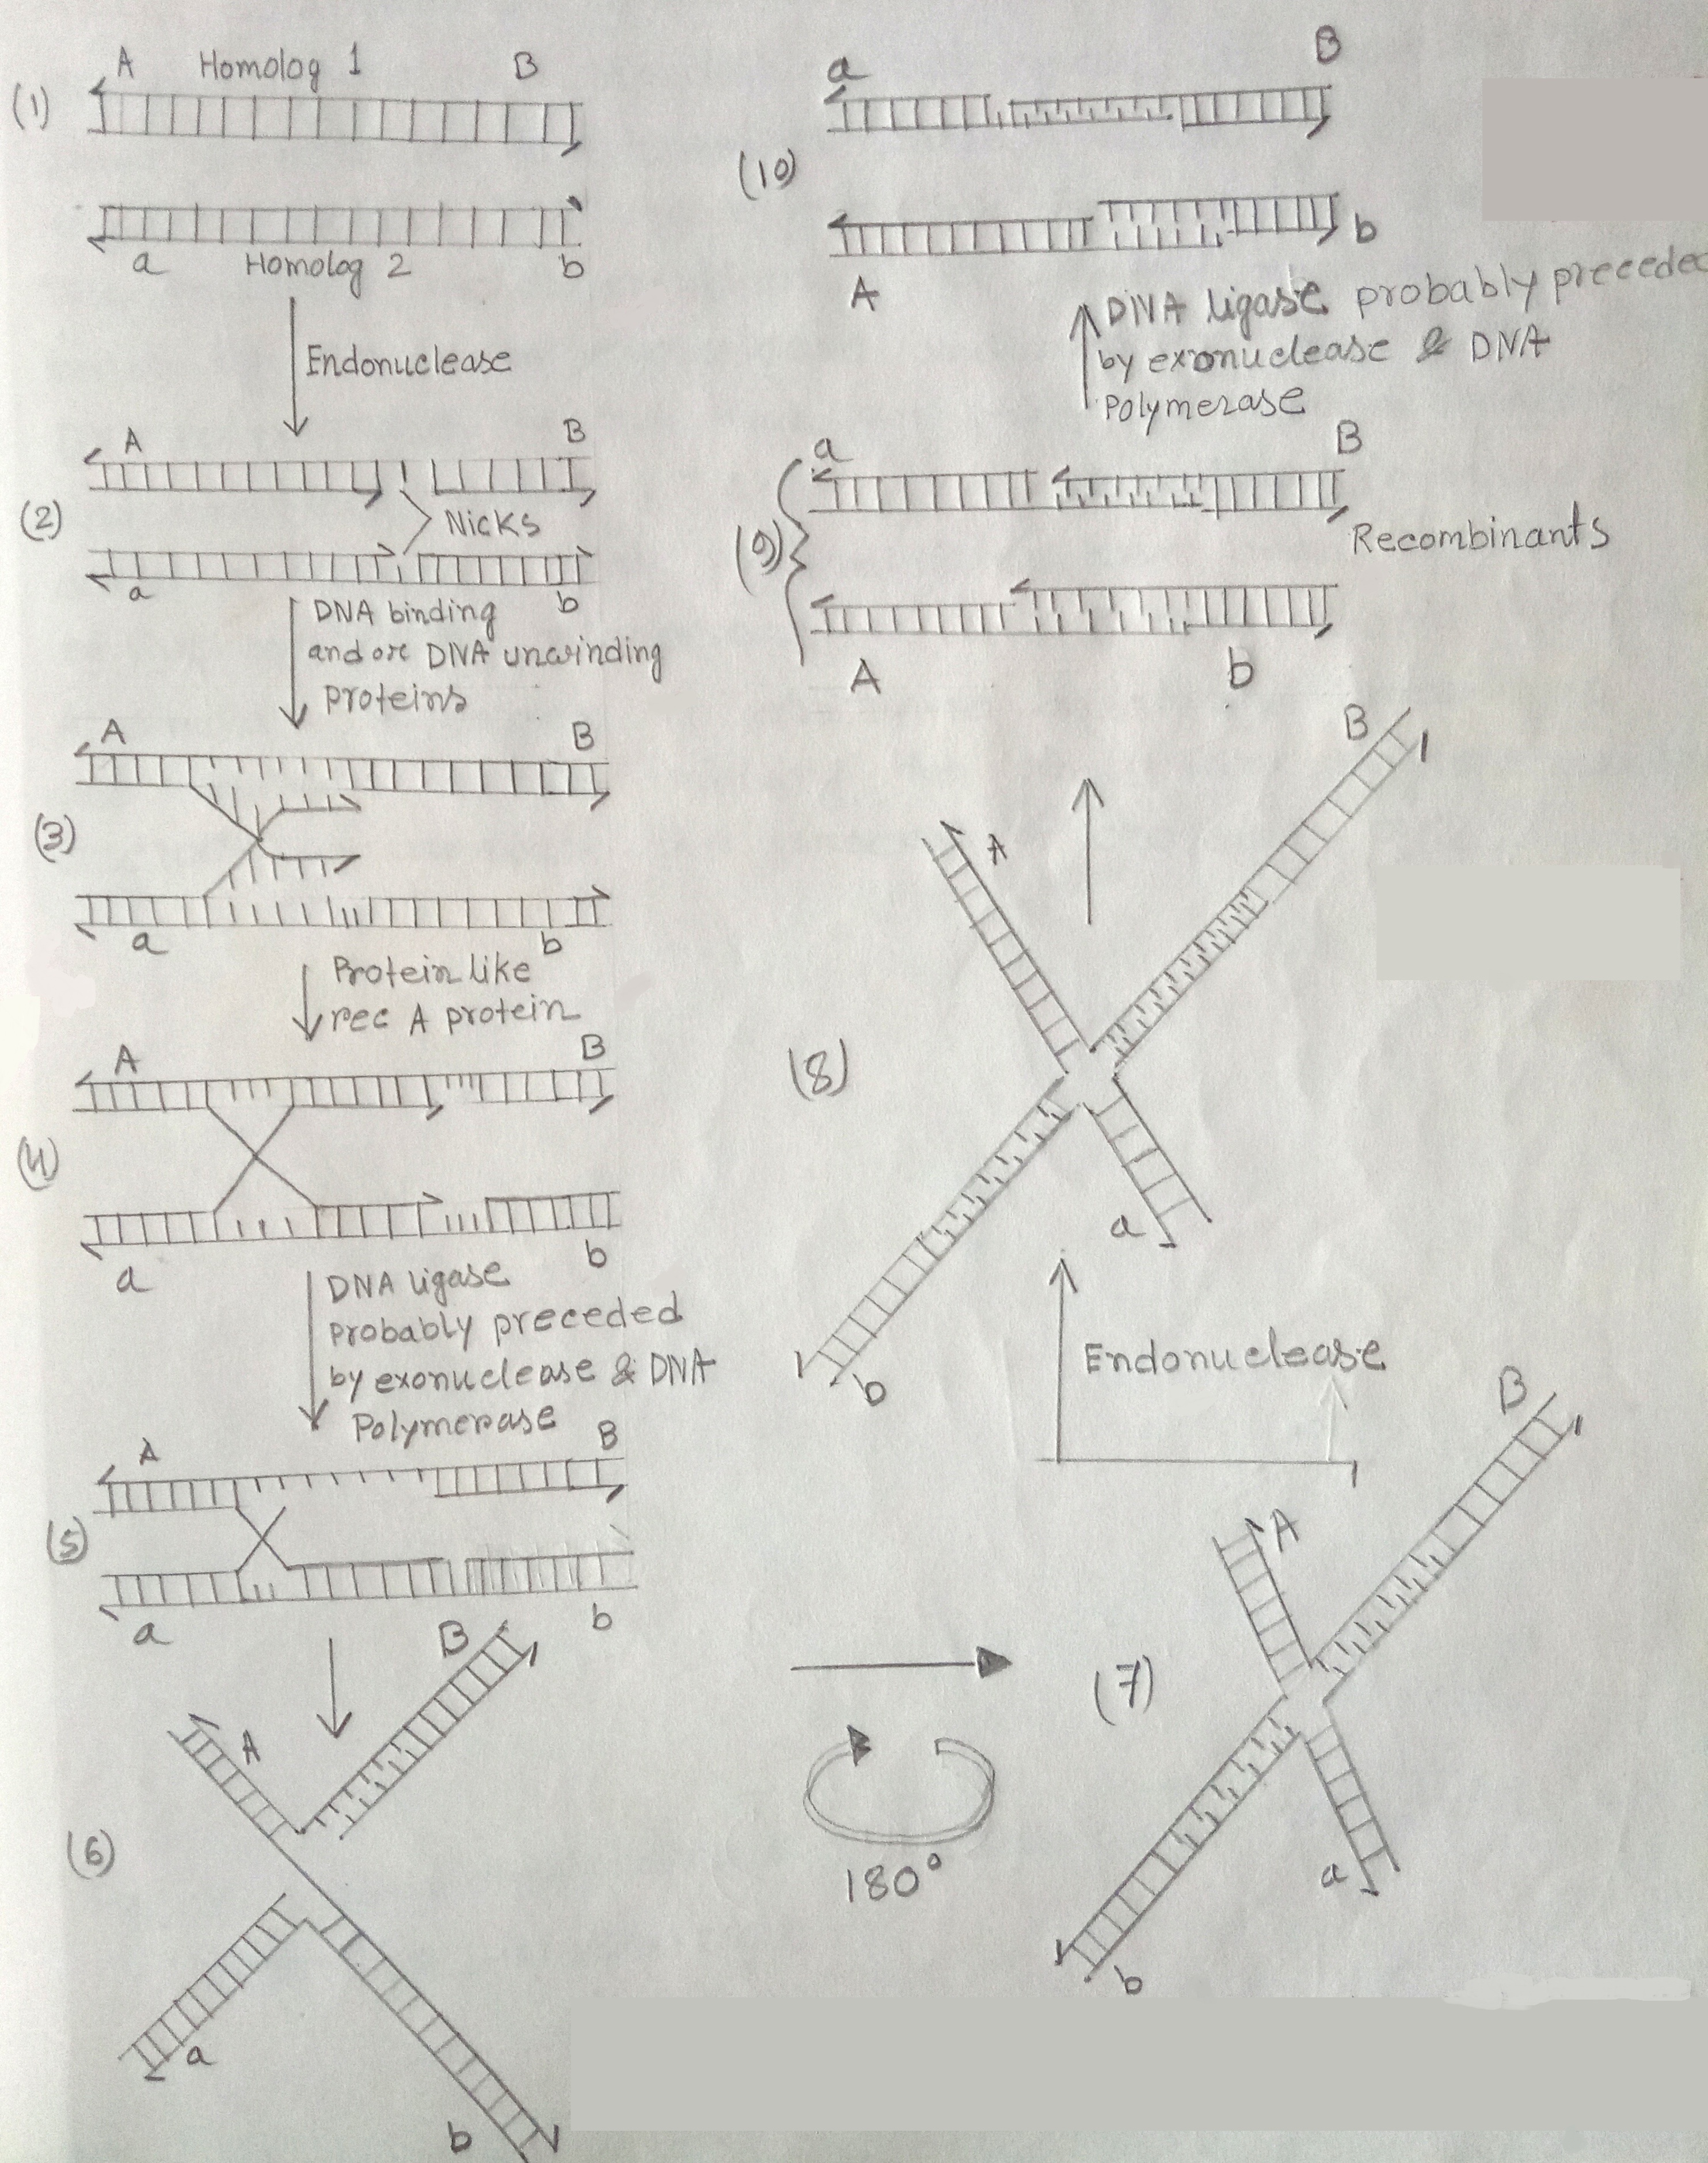 A Homolog 1 B
(1)
a Homolog 2 b
Endonuclease
A B
(2)
Nicks
a b
DNA binding
and or DNA unwinding
proteins
A B
(3)
a b
Protein like
rec A protein
A B
(4)
a b
DNA ligase
probably preceded
by exonuclease & DNA
Polymerase
A B
(5)
a b
B
A
(6)
a
b
180°
(7)
B
A
a
b
Endonuclease
(8)
B
A
a
b
(9)
a B
Recombinants
A b
DNA ligase probably preceded
by exonuclease & DNA
Polymerase
(10)
a B
b
A